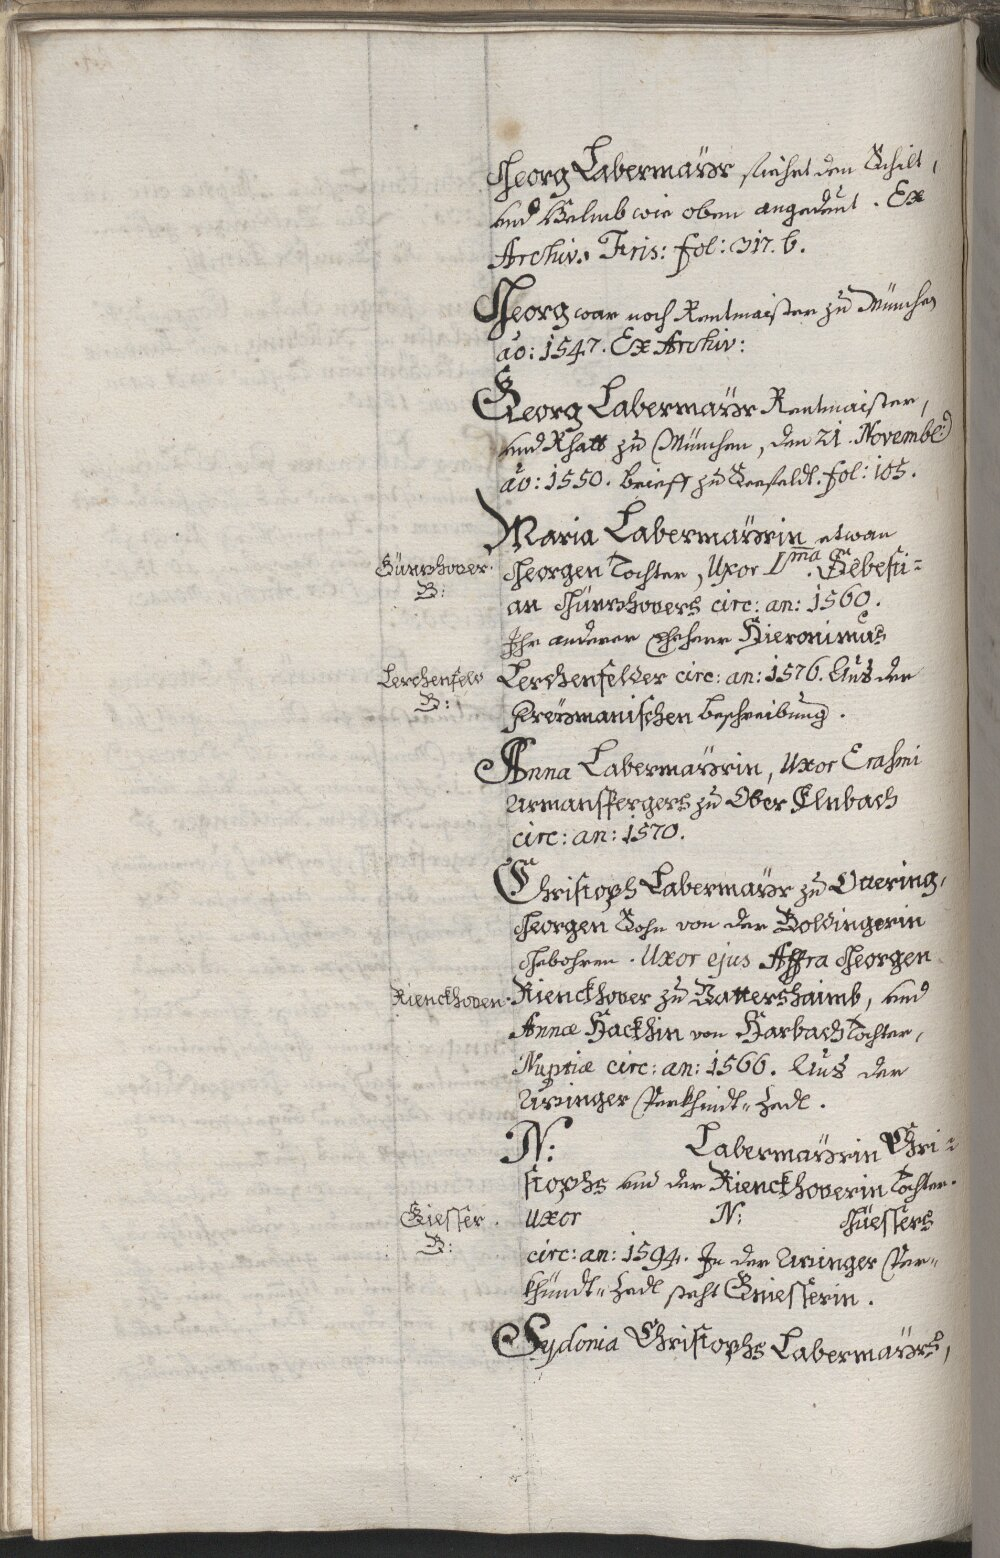 Georg Labermaÿr siehet den Schilt,
und Helmb wie oben angedeut. Ex
Archiv. Fris: fol: 317. b.
Georg war noch Rentmaister zu München
ao: 1547. Ex Archiv:
Georg Labermaÿr Rentmaister,
und Rhatt zu München, den 21. Novemb:
ao: 1550. brieff zu Seefeldt. fol: 105.
Maria Labermaÿrin etwan
Günzhover. Georgen Tochter, Uxor I.ma Sebasti=
B: an Günzhovers circ: an: 1560.
Ihr anderer Eheherr Hieronimus
Lerchenfeld Lerchenfelder circ: an: 1576. Aus der
B: Preÿmanischen beschreibung.
Anna Labermaÿrin, Uxor Erasmi
Armanspergers zu Ober Ellnbach
circ: an: 1570.
Christoph Labermaÿr zu Otering,
Georgen Sohn von der Goldingerin
Gebohren. Uxor ejus Affra Georgen
Rienckhoven. Rienckhover zu Rattershaimb, und
Annæ Hackhin von Harbach Tochter,
Nuptiæ circ: an: 1566. Aus der
Uzinger Verkhindt=Zedl.
N: Labermaÿrin Chri=
stophs und der Rienckhoverin Tochter.
Giesser. Uxor N: Giiessers
B: circ: an: 1594. In der Uzinger Ver=
khündt=Zedl steht Gniesserin.
Sydonia Christophs Labermaÿrs,